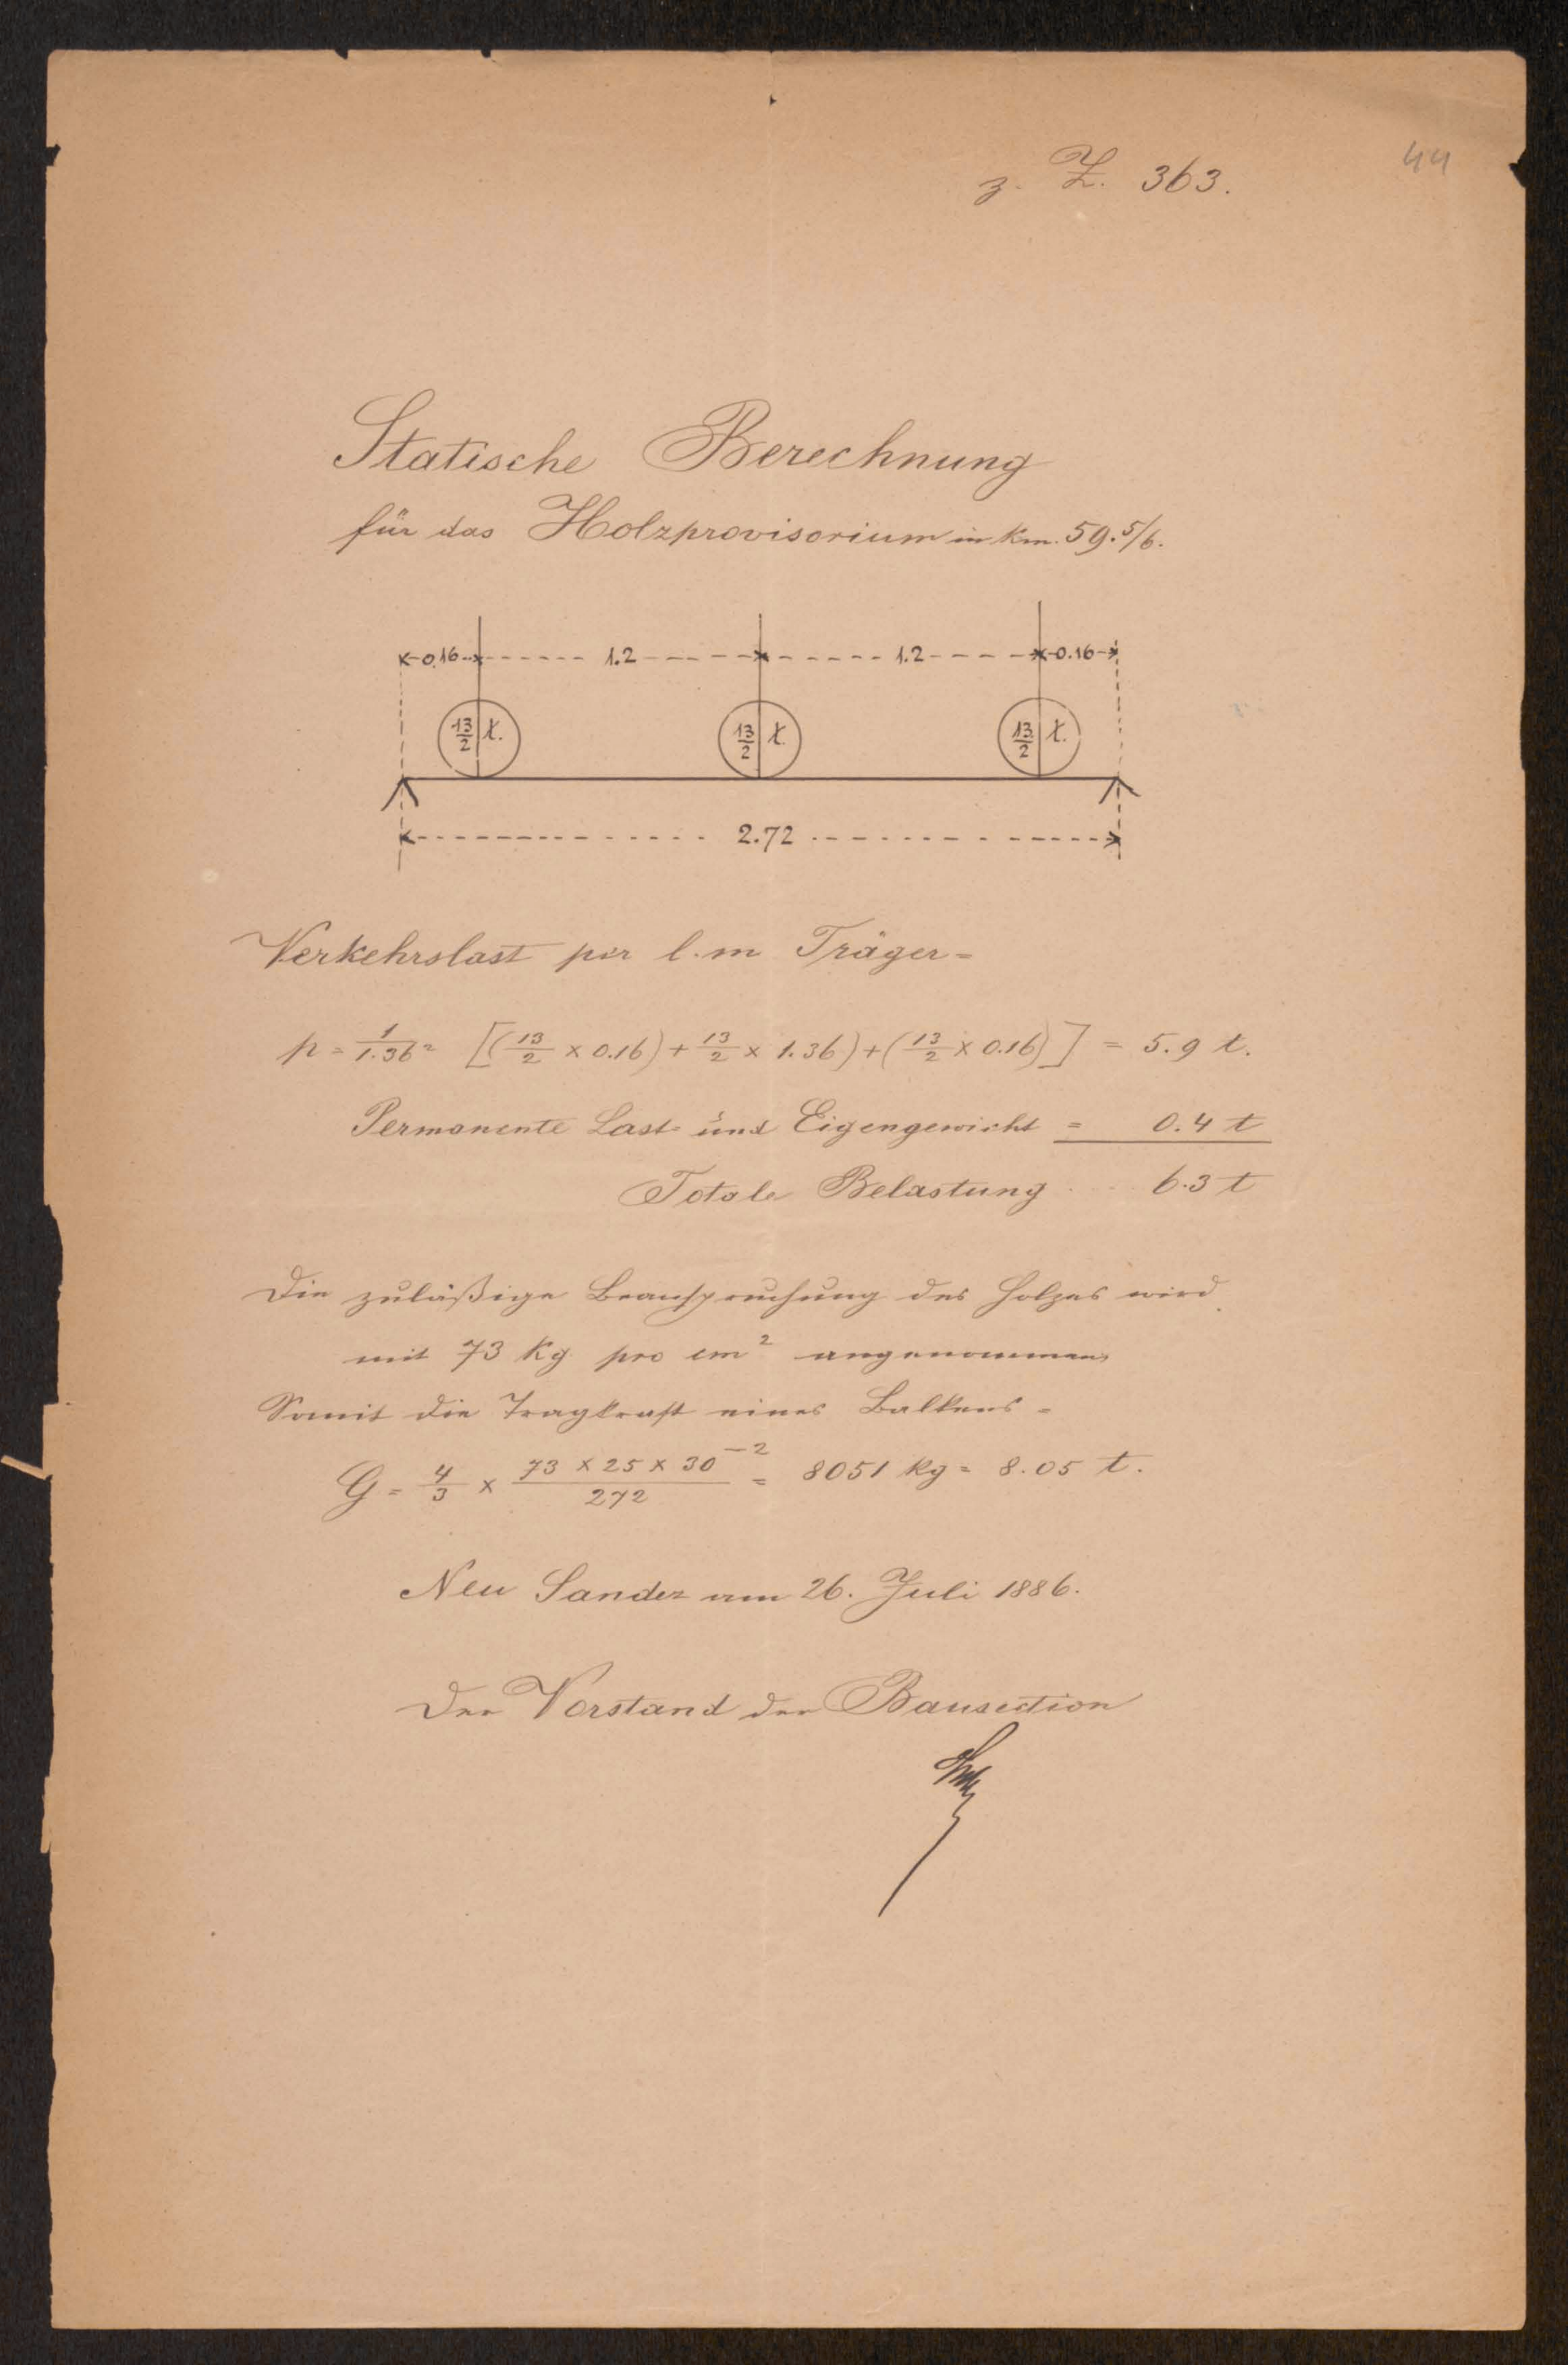 44
z. Z. 363.
Statische Berechnung
für das Holzprovisorium in Km. 59.5/6.
0.16 1.2 1.2 0.16
13/2 t. 13/2 t. 13/2 t.
2.72
Verkehrslast per l.m Träger =
p = 1/1.36² [(13/2 × 0.16) + 13/2 × 1.36) + (13/2 × 0.16)] = 5.9 t.
Permanente Last und Eigengewicht = 0.4 t
Totale Belastung 6.3 t
Die zuläßige Beanspruchung des Holzes wird
mit 73 Kg pro cm² angenommen
Somit die Tragkraft eines Balkens =
G = 4/3 × 73 × 25 × 30⁻²/272 = 8051 kg = 8.05 t.
Neu Sandez am 26. Juli 1886.
Der Vorstand der Bausection